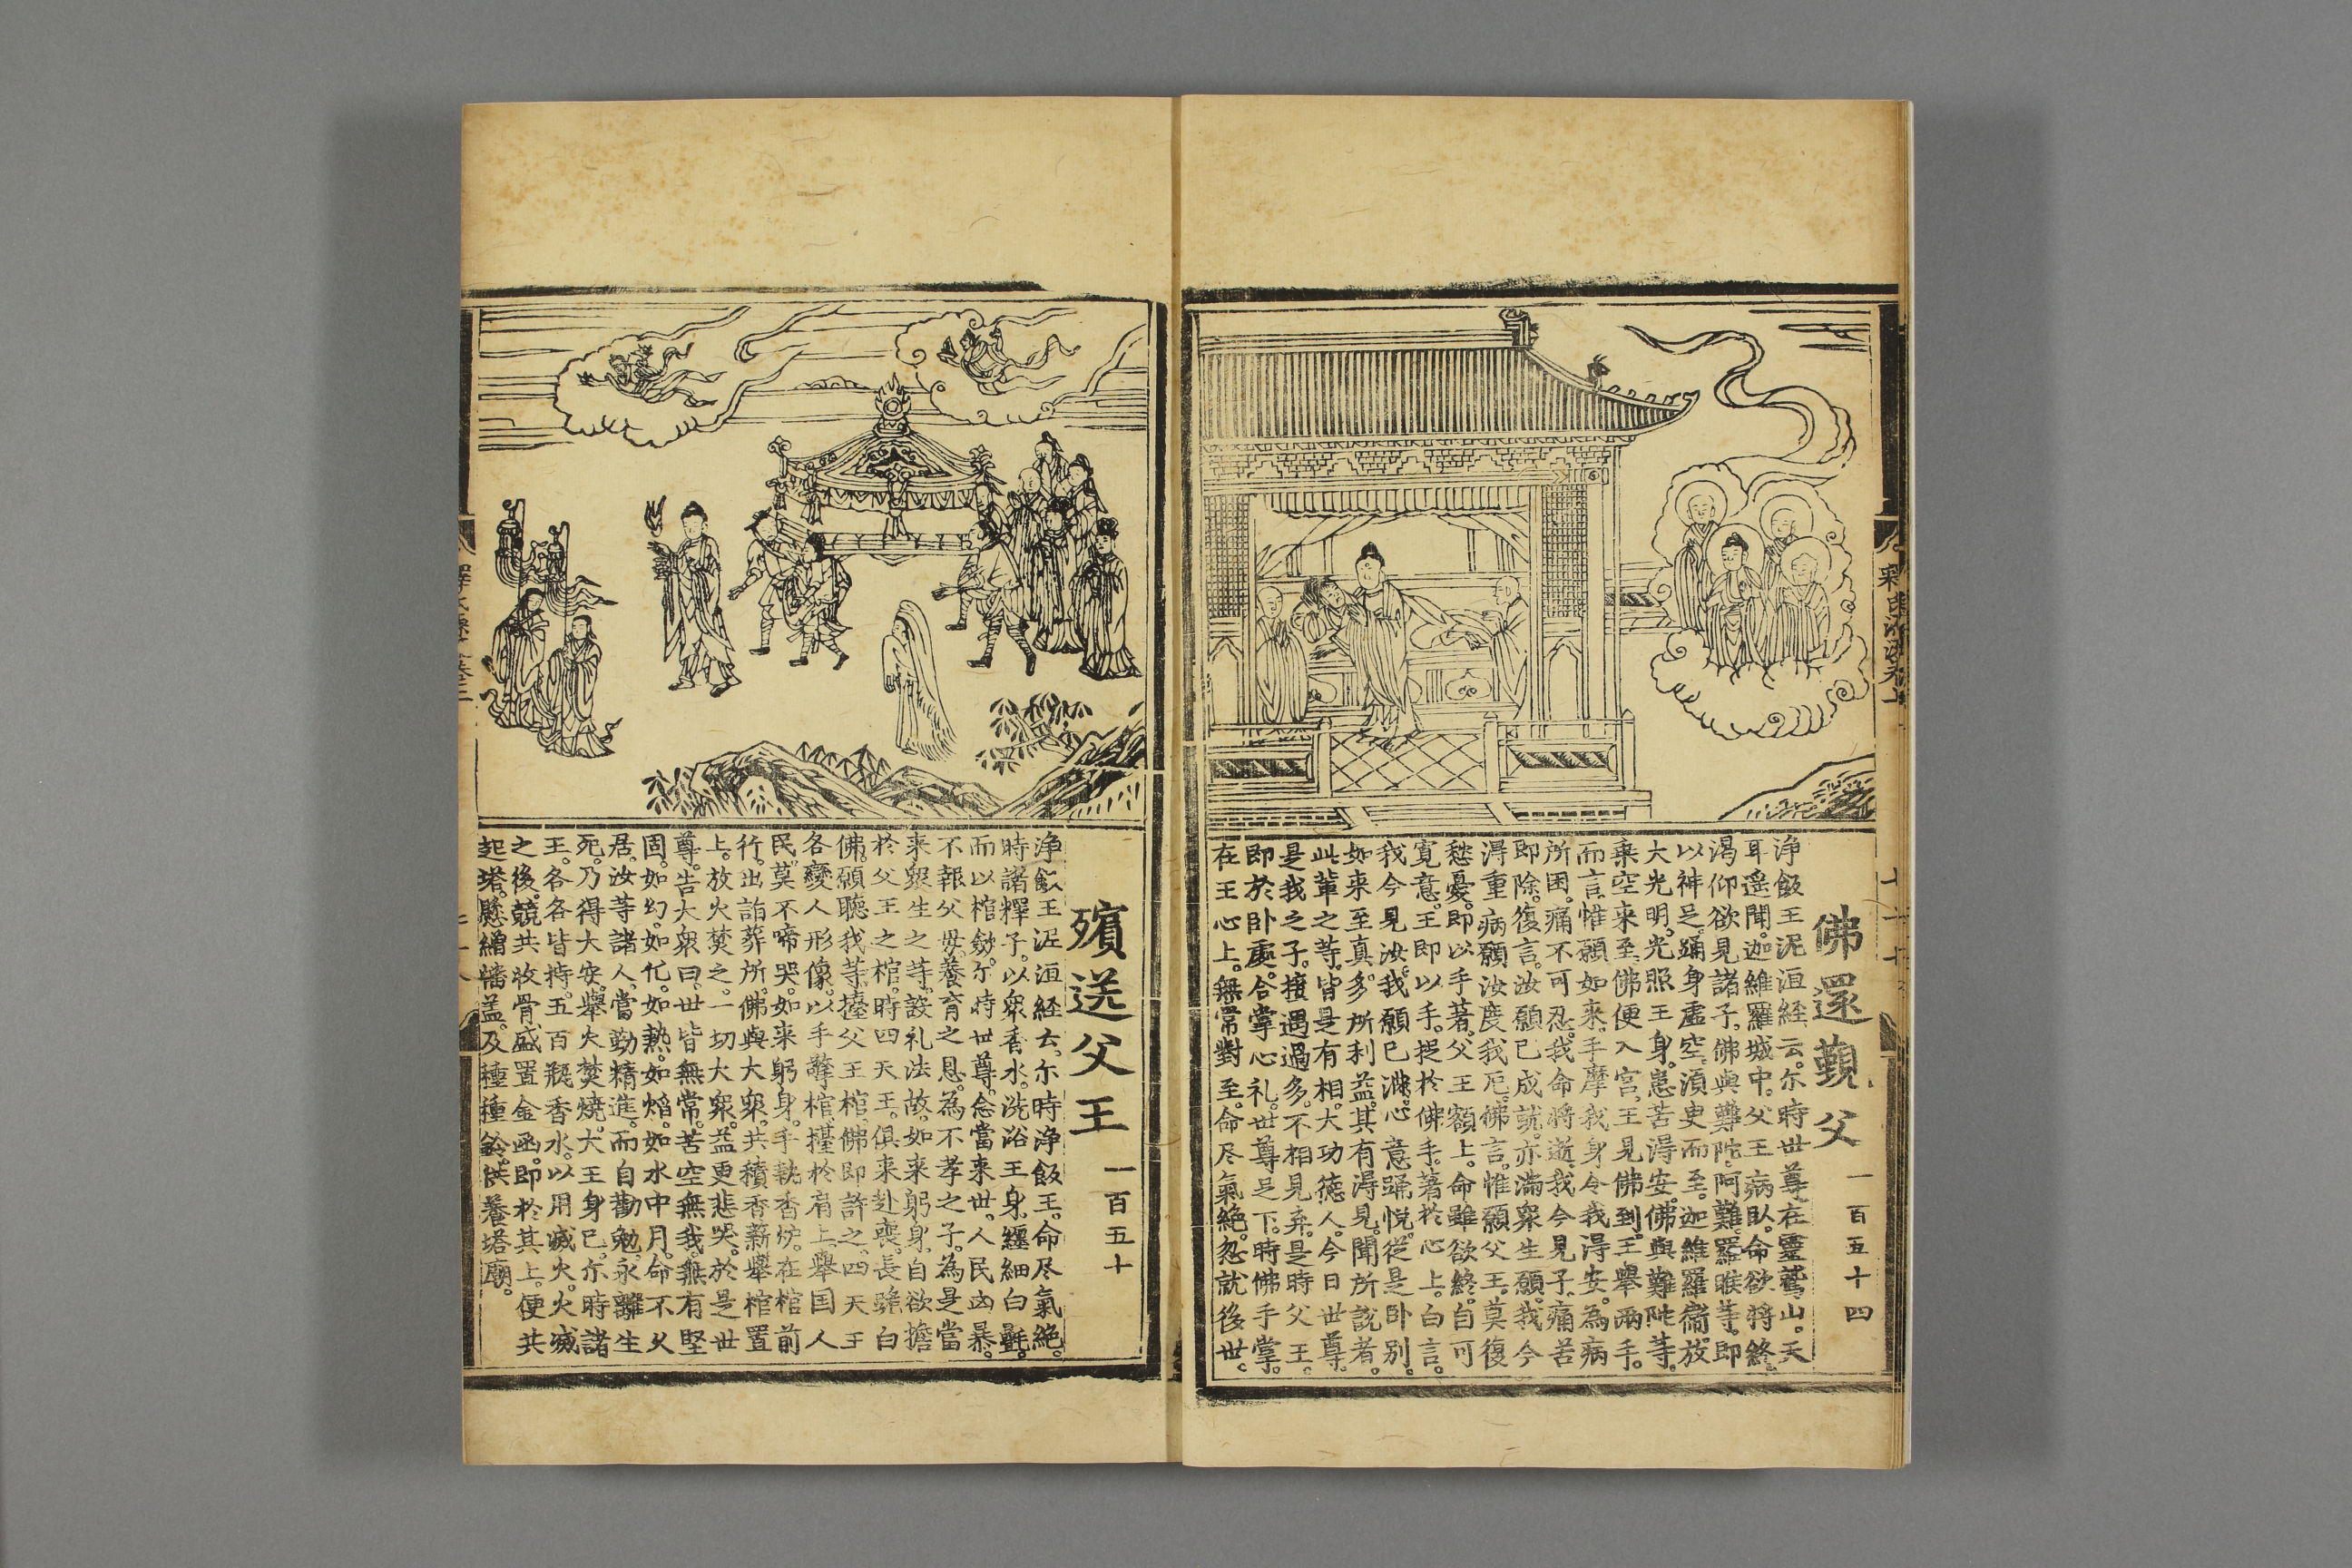 佛還覲父 一百五十四
淨飯王泥洹経云尓時世尊在靈鷲山天
耳遥聞迦維羅城中父王病臥命欲將終
渴仰欲見諸子佛與難陀阿難羅睺等即
以神足踊身虛空湏臾而至迦維羅衛放
大光明光照王身患苦淂安佛與難陀等
乘空来至佛便入宫王見佛到王舉兩手
而言惟願如来手摩我身令我淂安為病
所困痛不可忍我命將逝我今見子痛苦
即除復言汝願已成就亦滿衆生願我今
淂重病願汝度我厄佛言惟願父王莫復
愁憂即以手著父王額上命雖欲終自可
寛意王即以手捉於佛手著於心上白言
我今見汝我願已滿心意踊悅従是卧別
如来至真多所利益其有淂見聞所說者
此輩之等皆是有相大功德人今日世尊
是我之子接遇過多不相見弃是時父王
即於卧處合掌心礼世尊足下時佛手掌
在王心上無常對至命尽氣絶忽就後世
殯送父王 一百五十
淨飯王泥洹経云尓時浄飯王命尽氣絶
時諸釋子以衆香水洗浴王身纒細白㲲
而以棺斂尓時世尊念當来世人民凶暴
不報父母養育之恩為不孝之子為是當
来衆生之等設礼法故如来躬身自欲擔
於父王之棺時四天王俱来赴喪長跪白
佛願聽我等擡父王棺佛即許之四天王
各變人形像以手擎棺擡於肩上舉国人
民莫不啼哭如来躬身手執香炉在棺前
行出詣葬所佛與大衆共積香薪舉棺置
上放火焚之一切大衆益更悲哭於是世
尊告大衆曰世皆無常苦空無我無有堅
固如幻如化如熱如焰如水中月命不乆
居汝等諸人當勤精進而自勸勉永離生
死乃得大安舉火焚燒大王身已尓時諸
王各各皆持五百瓶香水以用滅火火滅
之後競共收骨盛置金函即於其上便共
起塔懸繒幡盖及種種鈴供養塔廟